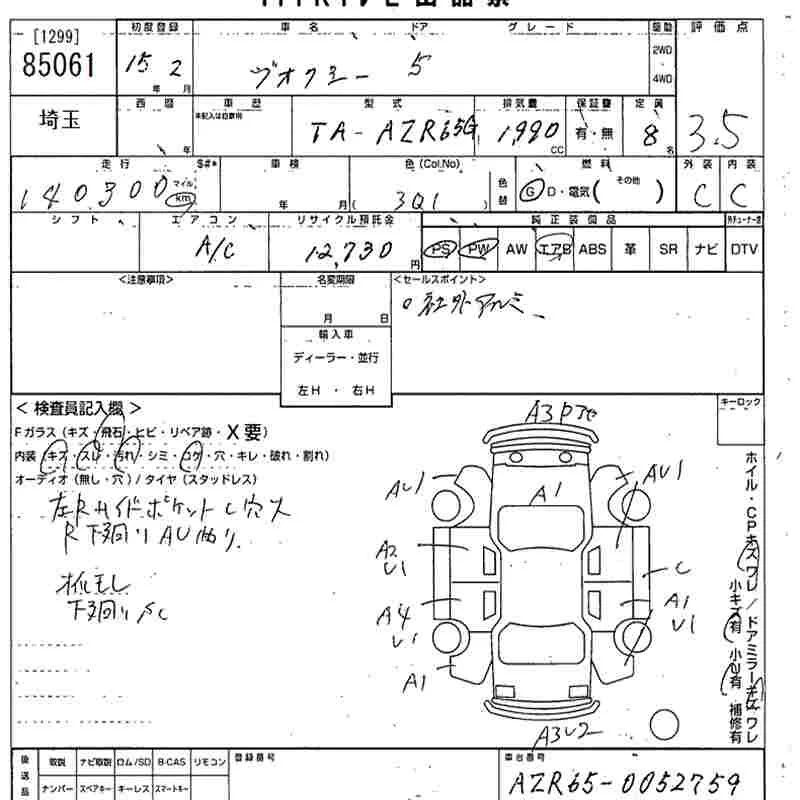 [1299]
85061
初度登録 車名 ドア グレード 駆動 評価点
15 2 ヴオクシー 5 2WD
年 月 4WD
埼玉 西暦 車歴 型式 排気量 保証書 定員 3.5
年 未記入は自家用 TA-AZR65G 1,990 CC 有・無 8 名
走行 S#* 車検 色(Col.No) 燃料 外装 内装
140300 マイル km 年 月 ( 3Q1 ) 色替 G D・電気( その他 ) C C
シフト エアコン リサイクル預託金 純正装備品
A/C 12,730 円 PS PW AW エアB ABS 革 SR ナビ DTV
<注意事項> 名変期限 <セールスポイント>
月 日 ○社外アルミ、
輸入車
ディーラー・並行
左H ・ 右H
< 検査員記入欄 > キーロック
Fガラス (キズ・飛石・ヒビ・リペア跡・X要)
内装 (キズ・スレ・汚れ・シミ・コゲ・穴・キレ・破れ・割れ)
オーディオ (無し・穴) / タイヤ (スタッドレス)
R下廻り AU
下廻り
A3
AU1 A1 AU1
A2
U1 C
A4 A1
U1 U1
A1
A3U2
ホイル・CPキズワレ/ドアミラーキズワレ
小キズ有 小U有 補修有
後送品 取説 ナビ取説 ロム/SD B-CAS リモコン 登録番号 車台番号
ナンバー スペアキー キーレス スマートキー AZR65-0052759